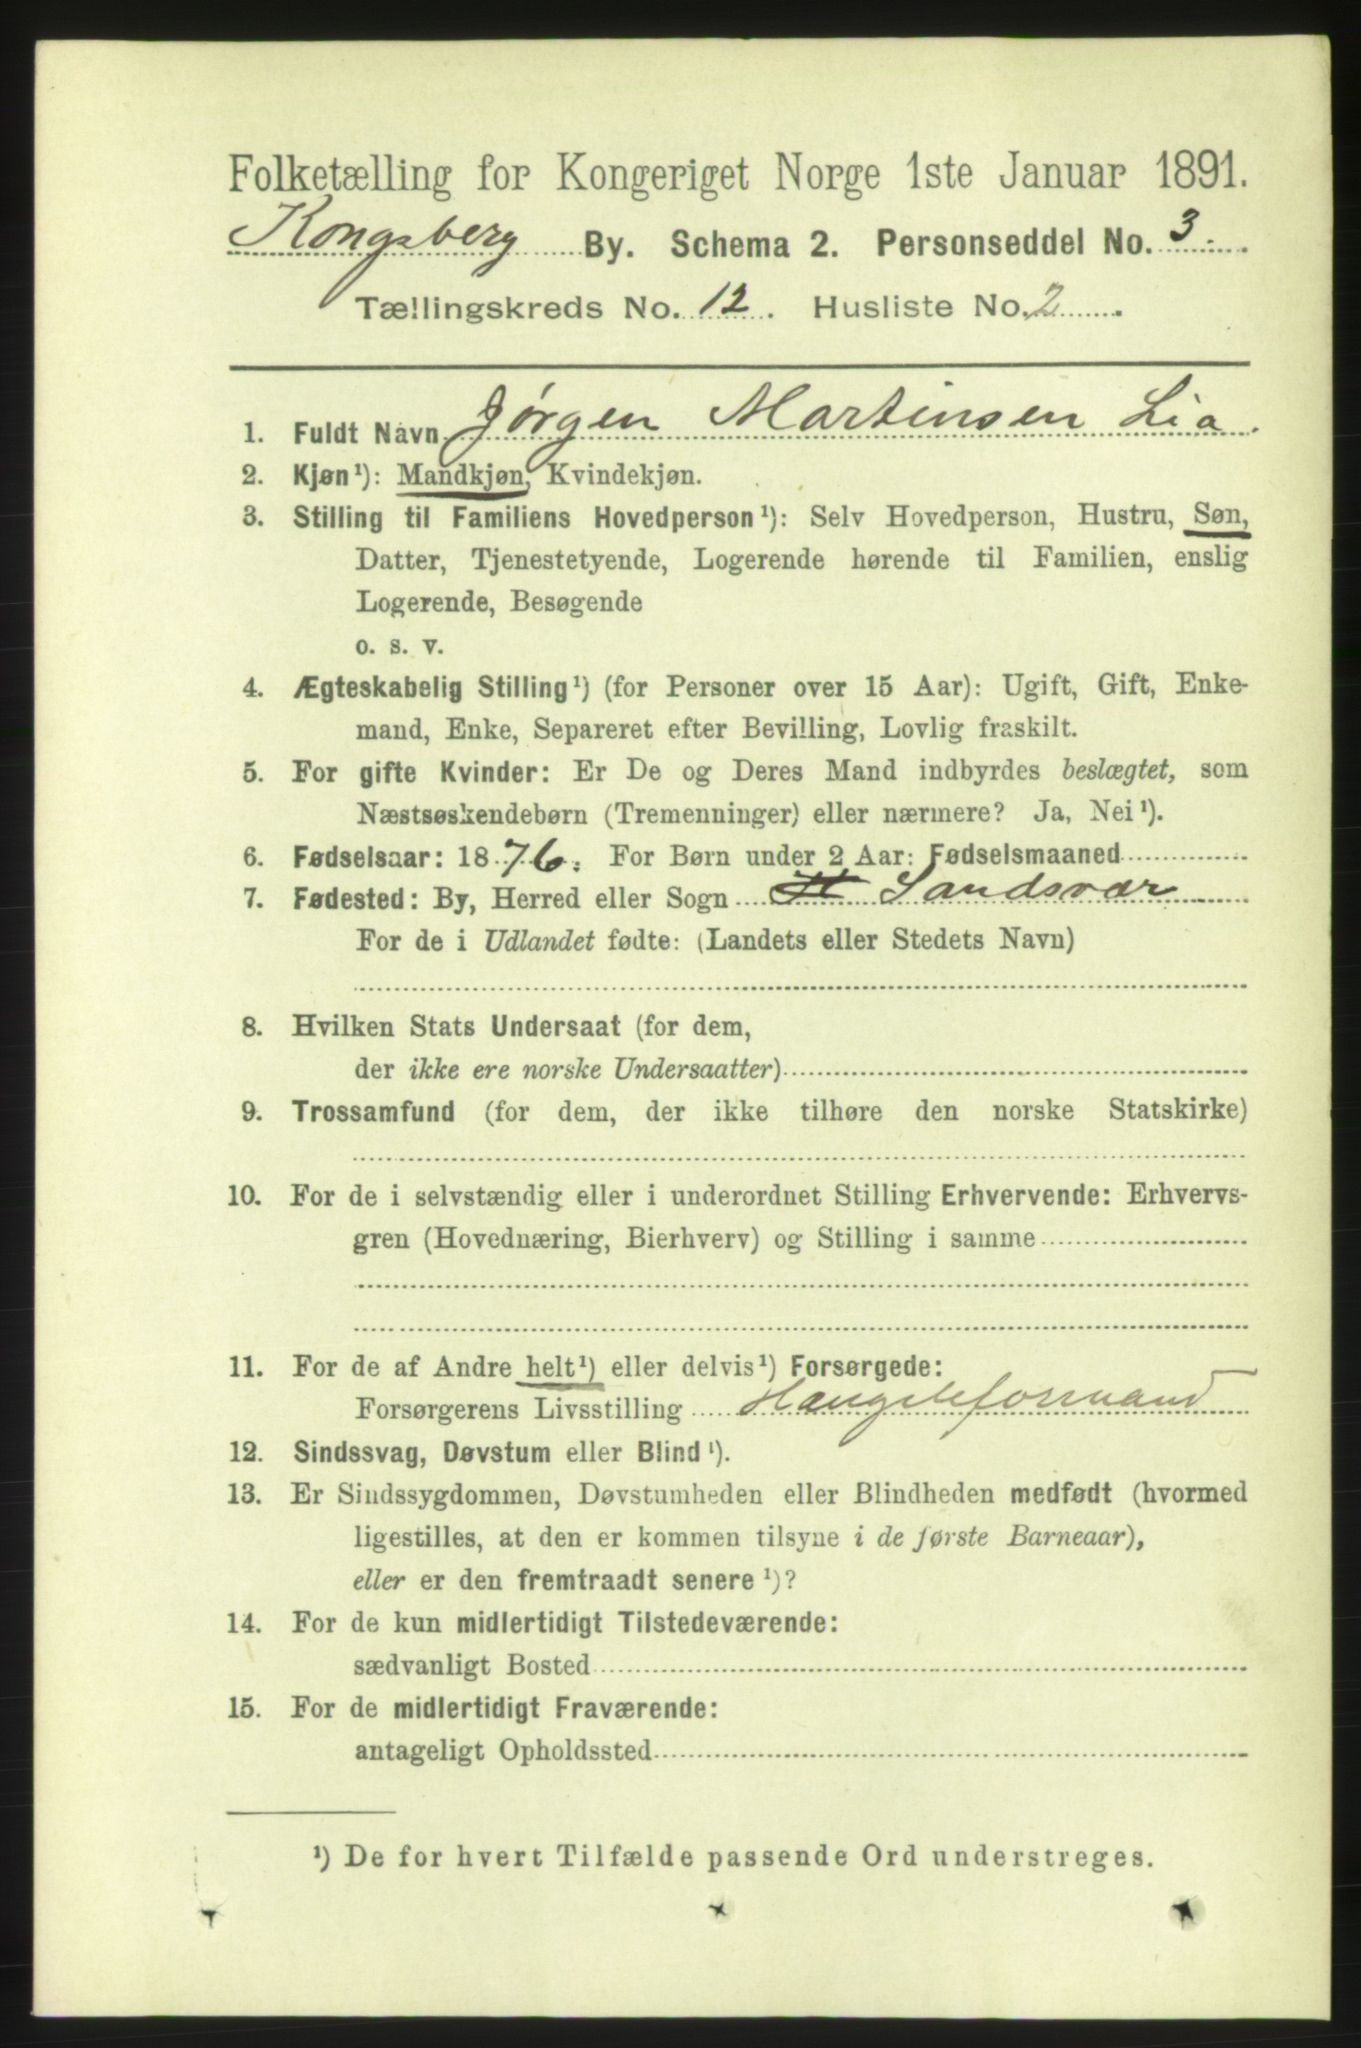 Folketælling for Kongeriget Norge 1ste Januar 1891.
Kongsberg By. Schema 2. Personseddel No. 3.
Tællingskreds No. 12. Husliste No. 2.
1. Fuldt Navn Jørgen Martinsen Lia.
2. Kjøn¹): Mandkjøn, Kvindekjøn.
3. Stilling til Familiens Hovedperson¹): Selv Hovedperson, Hustru, Søn,
Datter, Tjenestetyende, Logerende hørende til Familien, enslig
Logerende, Besøgende
o. s. v.
4. Ægteskabelig Stilling¹) (for Personer over 15 Aar): Ugift, Gift, Enke-
mand, Enke, Separeret efter Bevilling, Lovlig fraskilt.
5. For gifte Kvinder: Er De og Deres Mand indbyrdes beslægtet, som
Næstsøskendebørn (Tremenninger) eller nærmere? Ja, Nei¹).
6. Fødselsaar: 1876. For Børn under 2 Aar: Fødselsmaaned
7. Fødested: By, Herred eller Sogn Sandsvær
For de i Udlandet fødte: (Landets eller Stedets Navn)
8. Hvilken Stats Undersaat (for dem,
der ikke ere norske Undersaatter)
9. Trossamfund (for dem, der ikke tilhøre den norske Statskirke)
10. For de i selvstændig eller i underordnet Stilling Erhvervende: Erhvervs-
gren (Hovednæring, Bierhverv) og Stilling i samme
11. For de af Andre helt¹) eller delvis¹) Forsørgede:
Forsørgerens Livsstilling
12. Sindssvag, Døvstum eller Blind¹).
13. Er Sindssygdommen, Døvstumheden eller Blindheden medfødt (hvormed
ligestilles, at den er kommen tilsyne i de første Barneaar),
eller er den fremtraadt senere¹)?
14. For de kun midlertidigt Tilstedeværende:
sædvanligt Bosted
15. For de midlertidigt Fraværende:
antageligt Opholdssted
¹) De for hvert Tilfælde passende Ord understreges.